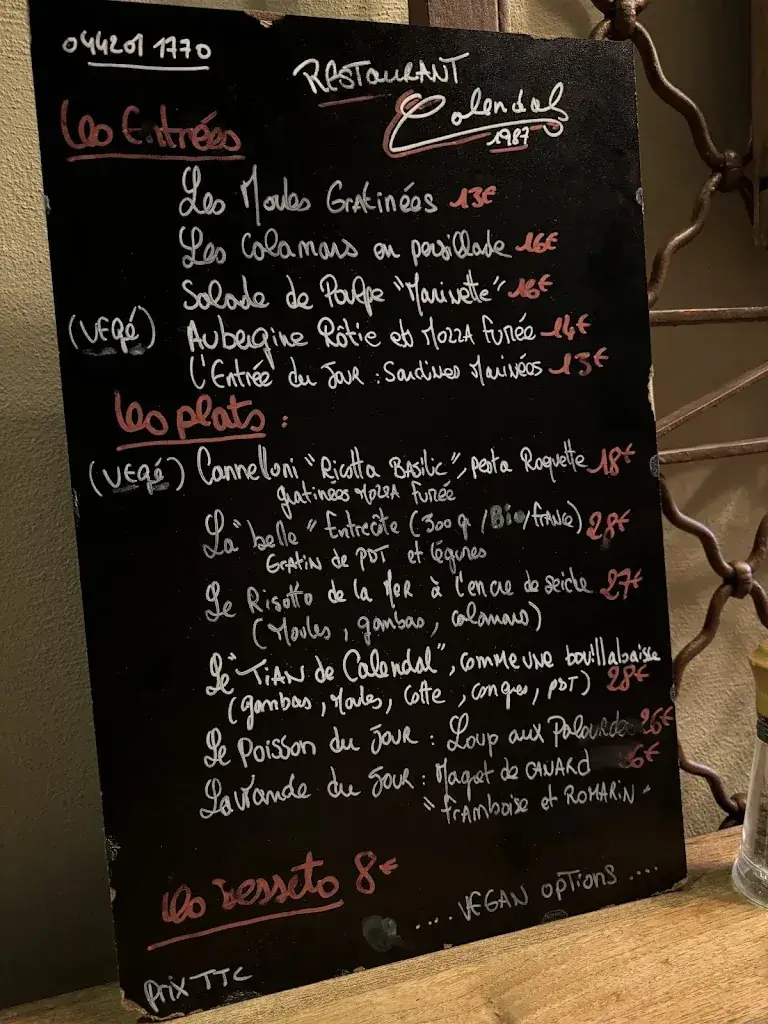 0442011770
RESTAURANT
Calendal
1987
Les Entrées
Les Moules Gratinées 13€
Les Calamars en persillade 16€
Salade de Poulpe "Marinette" 16€
(VEGÉ) Aubergine Rôtie et MOZZA fumée 14€
L'Entrée du Jour : Sardines Marinées 13€
Les plats :
(VEGÉ) Cannelloni "Ricotta BASILIC", pesto Roquette 18€
gratinées MOZZA fumée
La "belle" Entrecôte (300g /Bio/france) 28€
GRATIN de PDT et légumes
Le Risotto de la Mer à l'encre de seiche 27€
(Moules, gambas, calamars)
Le "TIAN de Calendal", comme une bouillabaisse
(gambas, Moules, lotte, congre, PDT) 28€
Le Poisson du Jour : Loup aux Palourdes 26€
La viande du Jour : Magret de CANARD 26€
"framboise et ROMARIN"
Les Desserts 8€
.... VEGAN options ....
Prix TTC